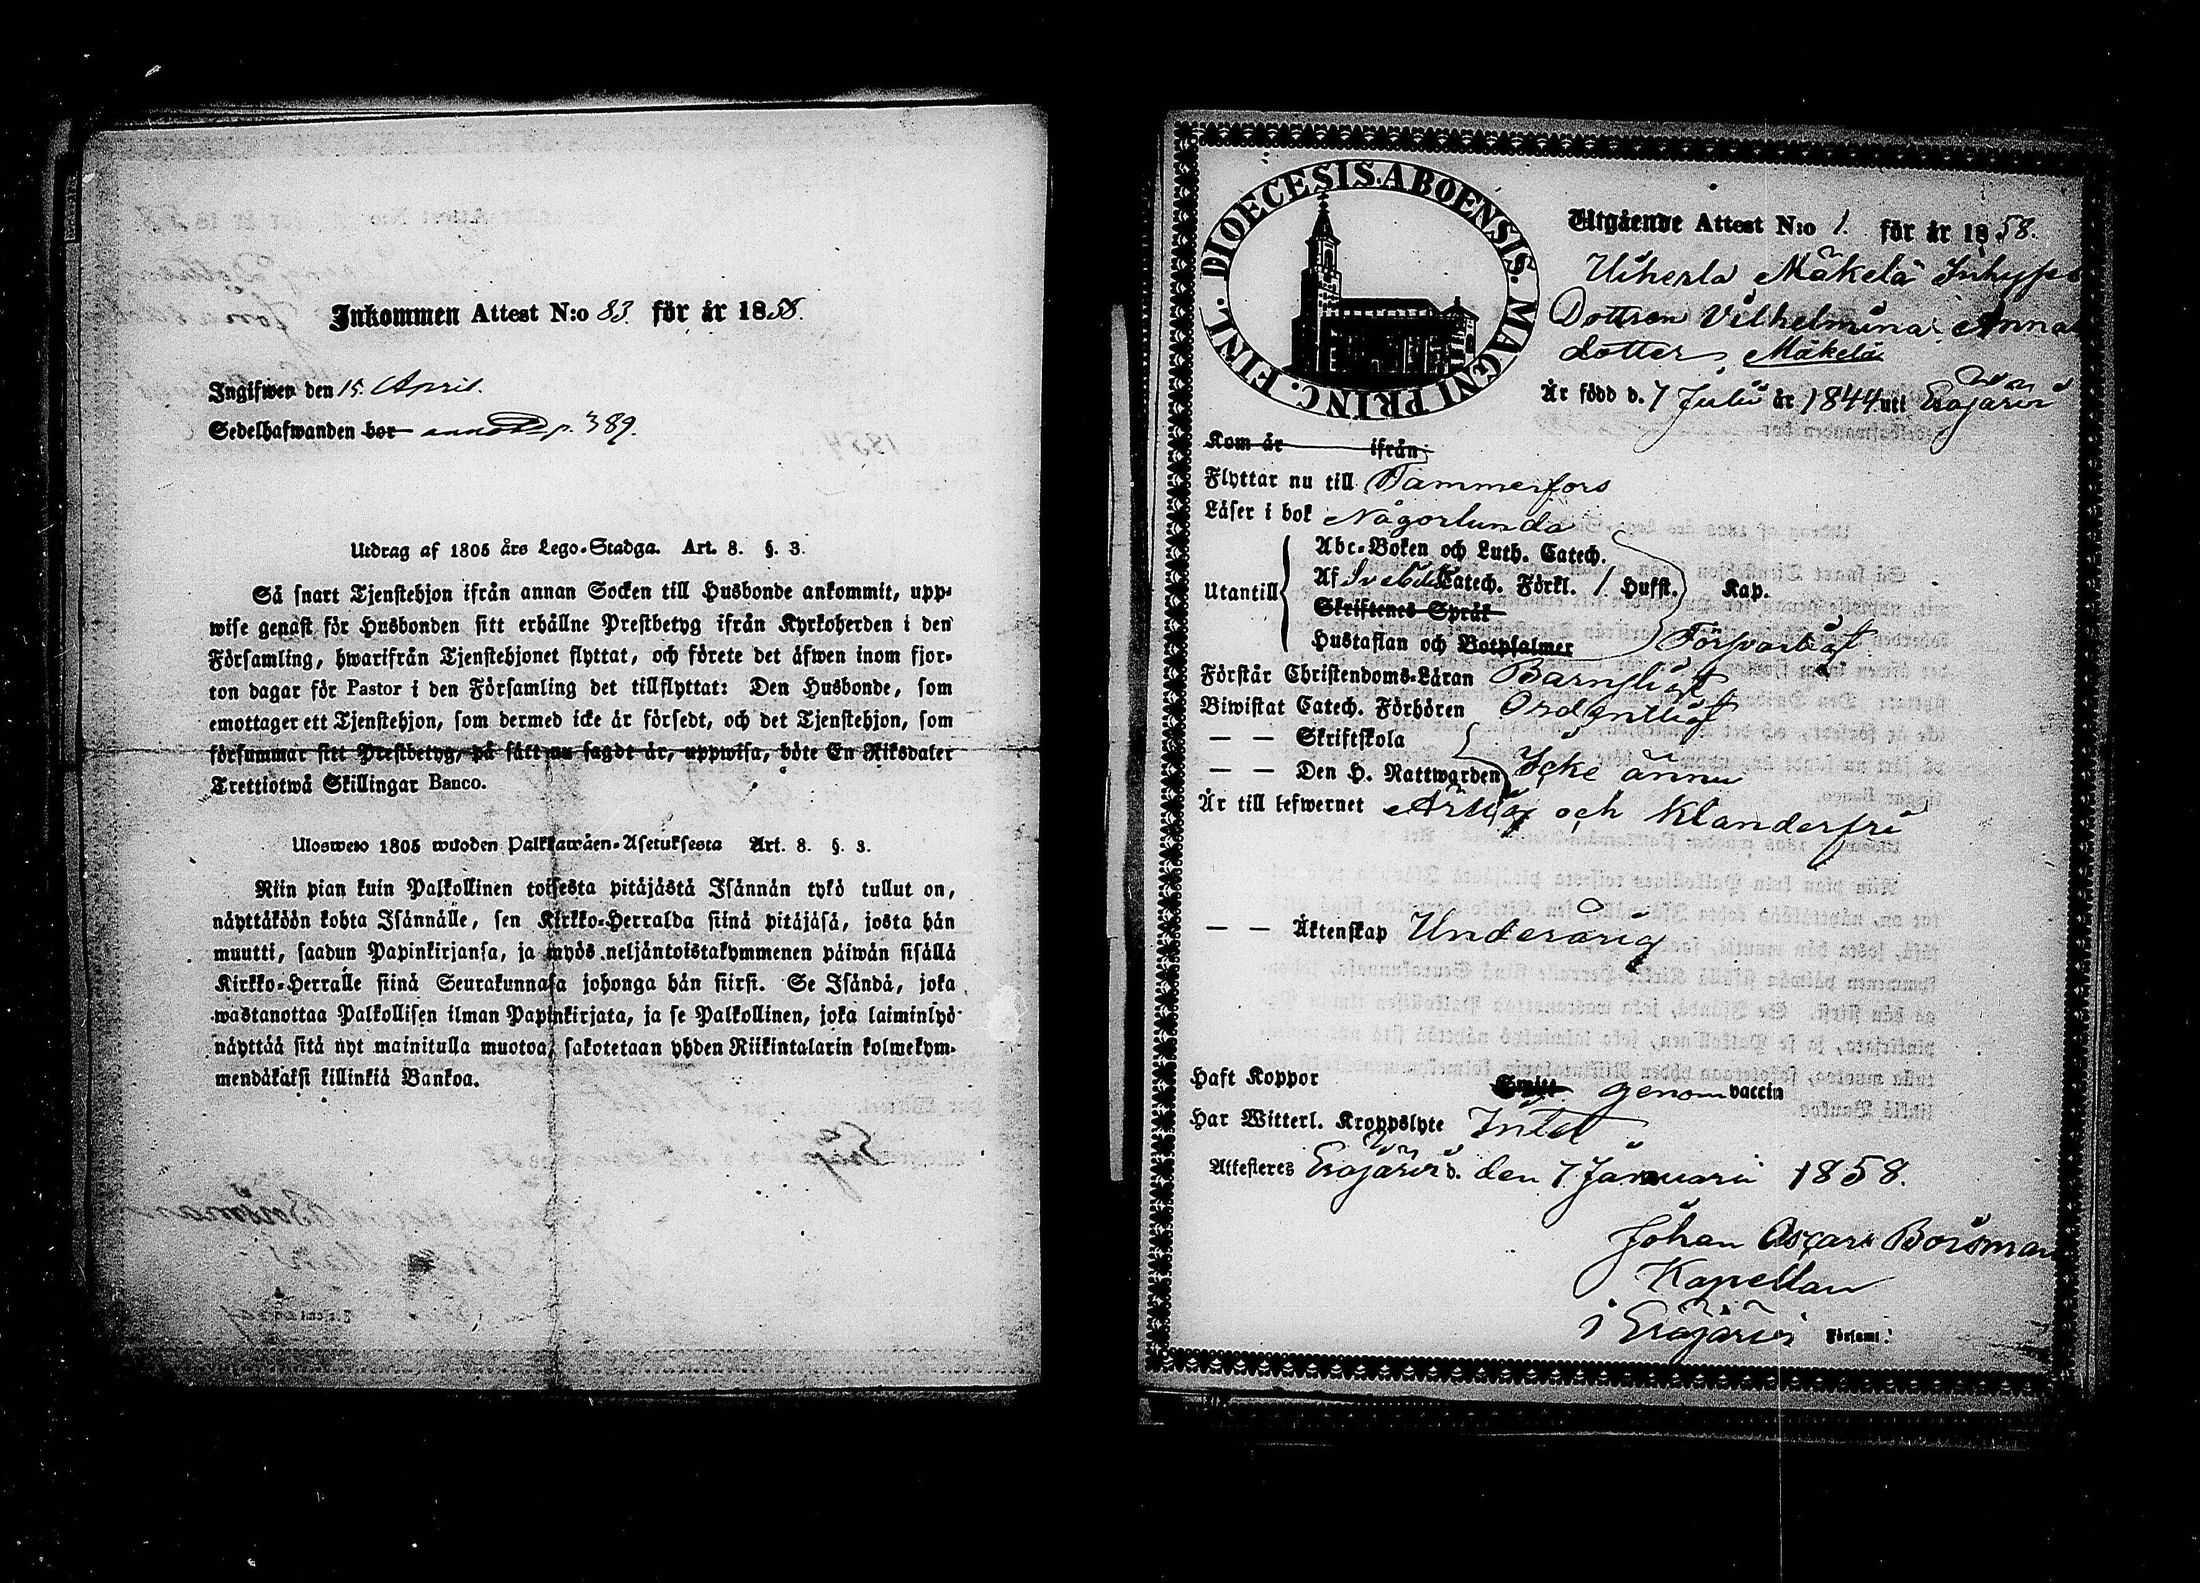 Inkommen Attest N:o 83. för år 1858.
Ingifwen den 15. April.
Sedelhafwanden bor p. 389.
Utdrag af 1805 års Lego-Stadga. Art. 8. §. 3.
Så snart Tjenstehjon ifrån annan Socken till Husbonde ankommit, upp-
wise genast för Husbonden sitt erhållne Prestbetyg ifrån Kyrkoherden i den
Församling, hwarifrån Tjenstehjonet flyttat, och förete det äfwen inom fjor-
ton dagar för Pastor i den Församling det tillflyttat: Den Husbonde, som
emottager ett Tjenstehjon, som dermed icke är försedt, och det Tjenstehjon, som
försummar sitt Prestbetyg, på sätt nu sagdt är, uppwisa, böte En Riksdaler
Trettiotwå Skillingar Banco.
Ulosweto 1805 wuoden Palkkawäen-Asetuksesta Art. 8. §. 3.
Niin pian kuin Palkollinen toisesta pitäjästä Isännän tykö tullut on,
näyttäköön kohta Isännälle, sen Kirkko-Herralda siinä pitäjäsä, josta hän
muutti, saadun Papinkirjansa, ja myös neljäntoistakymmenen päiwän sisällä
Kirkko-Herralle siinä Seurakunnasa johonga hän siirsi. Se Isändä, joka
wastanottaa Palkollisen ilman Papinkirjata, ja se Palkollinen, joka laiminlyö
näyttää sitä nyt mainitulla muotoa, sakotetaan yhden Riikintalarin kolmekym-
mendäkaksi killinkiä Bankoa.
DIOECESIS. ABOENSIS. MAGNI PRINC. FINL.
Utgående Attest N:o 1. för år 1858.
Uiherla Mäkelä Inhyses
Dottren Vilhelmina Anna
dotter Mäkelä
Är född d. 7 Julii år 1844 uti Eräjärvi
Kom år ifrån
Flyttar nu till Tammerfors
Läser i bok Någorlunda
Utantill
Abc-Boken och Luth. Catech.
Af Svebelii Catech. Förkl. 1. Hufst. Kap.
Skriftenes Språk
Hustaflan och Botpsalmer Försvarligt
Förstår Christendoms-Läran Barnsligt
Biwistat Catech. Förhören Ordentligt
— — Skriftskola
— — Den H. Nattwarden Icke ännu
Är till lefwernet Ärlig och klanderfri
— — Äktenskap Underårig
Haft Koppor genom vaccin
Har Witterl. Kroppslyte Intet
Attesteres Eräjärvi d. den 7 Januarii 1858.
Johan Oscar Borsman
Kapellan
i Eräjärvi Församl.